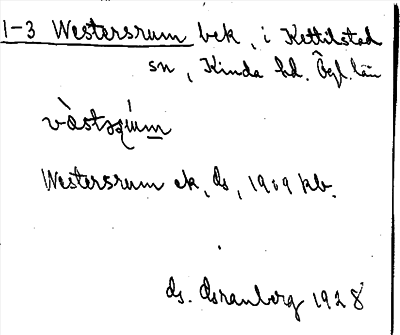 1-3 Westersrum bek, i Kettilstad
sn, Kinda hd. Ögl. län
Westersrum ek, ds, 1909 kb.
ds. 1928